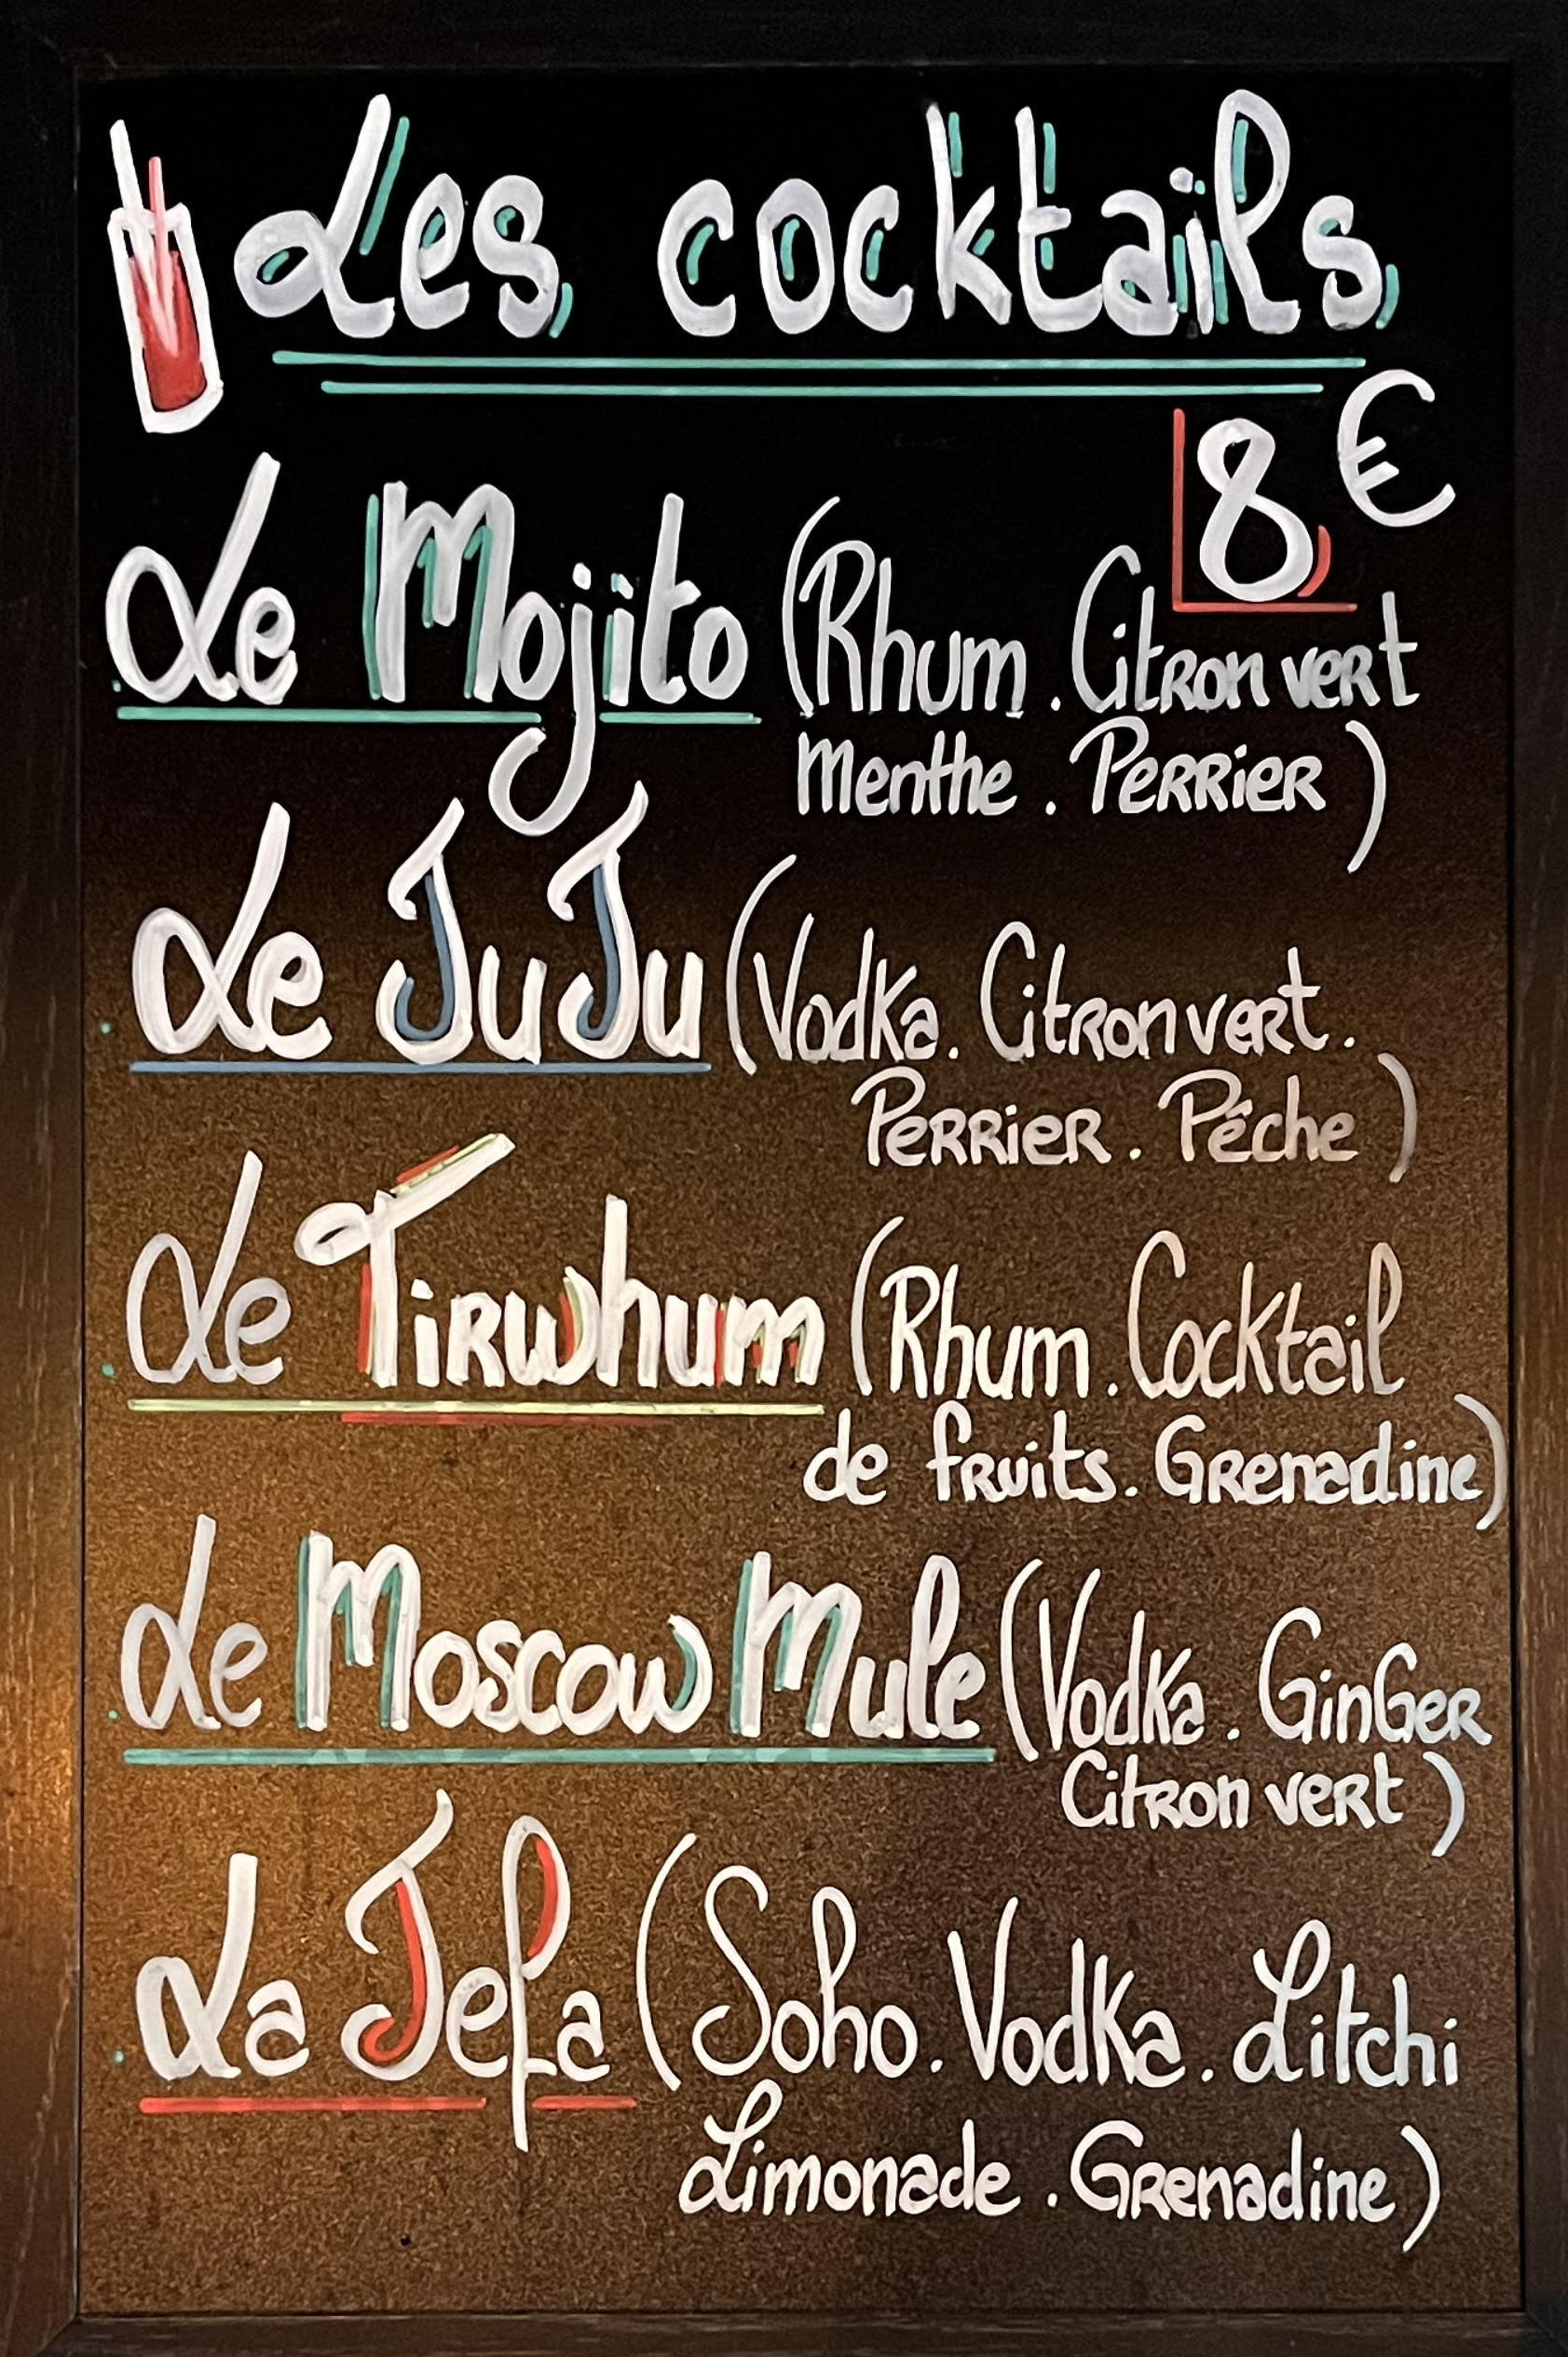 Les cocktails
8€
Le Mojito (Rhum . Citron vert
Menthe . Perrier)
Le JuJu (Vodka. Citron vert.
Perrier . Pêche)
Le Tirwhum (Rhum . Cocktail
de fruits. Grenadine)
Le Moscow Mule (Vodka . GinGer
Citron vert)
La Jefa (Soho. Vodka. Litchi
Limonade . Grenadine)